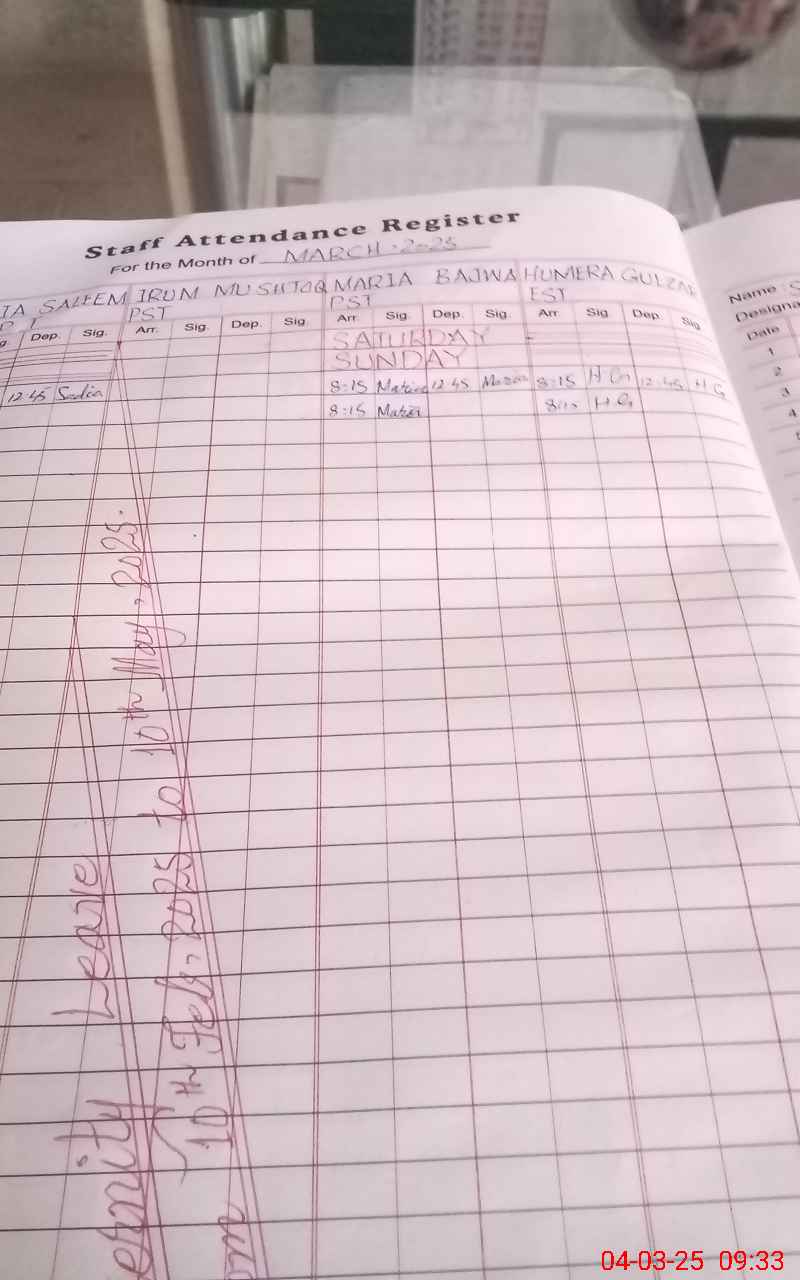 Staff Attendance Register
For the Month of MARCH-2025
IA SALEEM IRUM MUSHTAQ MARIA BAJWA HUMERA GULZAR
PST PST EST
Dep. Sig. Arr. Sig. Dep. Sig. Arr. Sig. Dep. Sig. Arr. Sig Dep. Sig
SATURDAY
SUNDAY
12:45 Sadia 8:15 Maria 12:45 Maria 8:15 H G 12:45 H G
8:15 Maria 8:15 H G
ernity Leave
10th Feb, 2025 to 10th May, 2025.
Name :
Designa
Date
1
2
3
4
04-03-25 09:33